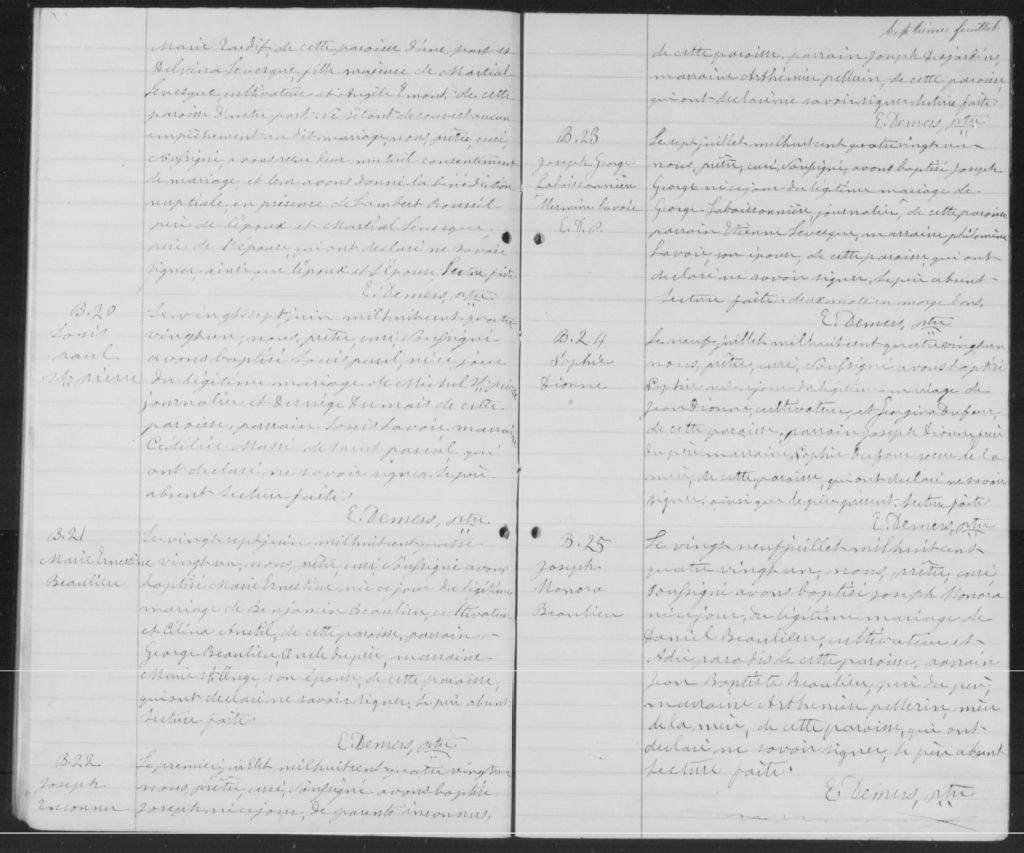 Marie Tardif, de cette paroisse d'une part et
Delvina Levesque fille majeure de Martial
Levesque, cultivateur et Angèle Emont de cette
paroisse d'autre part. Ne s'étant découvert aucun
empêchement au dit mariage, nous, prêtre, curé,
soussigné, avons reçu leur mutuel consentement
de mariage et leur avons donné la bénédiction
nuptiale, en présence de Lambert Roussel
père de l'époux et Martial Levesque,
père de l'épouse, qui ont declaré ne savoir
signer, ainsi que l'époux et l'épouse. Lecture faite
E. Demers, ptre
B.20
Louis
Paul
St. pierre
Le vingt sept juin mil huit cent quatre
vingt un, nous, prêtre curé soussigné
avons baptisé Louis paul, né ce jour
du légitime mariage de Michel St. pierre
journalier et Demige Dumais de cette
paroisse, parrain Louis Lavoie marraine
Cédélice Massé de saint pascal qui
ont declaré ne savoir signer. Le père
absent. Lecture faite.
E. Demers, ptre.
B.21
Marie Ernestine
Beaulieu
Le vingt sept juin mil huit cent quatre
vingt un, nous, prêtre, curé soussigné avons
baptisé Marie Ernestine, née ce jour du légitime
mariage de Benjamin Beaulieu, cultivateur
et Célina Anctil, de cette paroisse, parrain
George Beaulieu, oncle du père, marraine
Marie St Ange, son épouse, de cette paroisse,
qui ont declaré ne savoir signer. Le père absent
Lecture faite.
E. Demers, ptre
B.22
Joseph
Inconnu
Le premier juillet mil huit cent quatre vingt un
nous, prêtre, curé, soussigné avons baptisé
Joseph, né ce jour, de parents inconnus,
Septième feuillet
de cette paroisse, parrain Joseph Desjardins,
marraine Arthémise pelletier, de cette paroisse
qui ont declaré ne savoir signer. Lecture faite.
E. Demers, ptre
B.23
Joseph George
Laboissonnière
Mermine Lavoie
E.D.P.
Le sept juillet mil huit cent quatre vingt un
nous, prêtre, curé, soussigné, avons baptisé Joseph
George né ce jour du légitime mariage de
George Laboissonnière, journalier, de cette paroisse
parrain Etienne Levesque, marraine philomène
Lavoie, son épouse, de cette paroisse, qui ont
declaré ne savoir signer, le père absent
Lecture faite. deux mots en marge bons.
E. Demers, ptre
B.24
Sophie
Dionne
Le neuf juillet mil huit cent quatre vingt un
nous, prêtre, curé, soussigné avons baptisé
Sophie née ce jour du légitime mariage de
Jean Dionne, cultivateur, et Georgina Dufour,
de cette paroisse, parrain Joseph Dionne père
du père marraine, Sophie Dufour soeur de la
mère, de cette paroisse, qui ont declaré ne savoir
signer, ainsi que le père présent. Lecture faite.
E. Demers, ptre
B.25
Joseph
Honora
Beaulieu
Le vingt neuf juillet mil huit cent
quatre vingt un, nous, prêtre, curé
soussigné avons baptisé Joseph Honora
né ce jour, du légitime mariage de
Daniel Beaulieu, cultivateur et
Adée paradis de cette paroisse, parrain
Jean Baptiste Beaulieu, père du père,
marraine Arthémise pellerin, mère
de la mère, de cette paroisse, qui ont
declaré ne savoir signer, le père absent
Lecture faite.
E. Demers, ptre